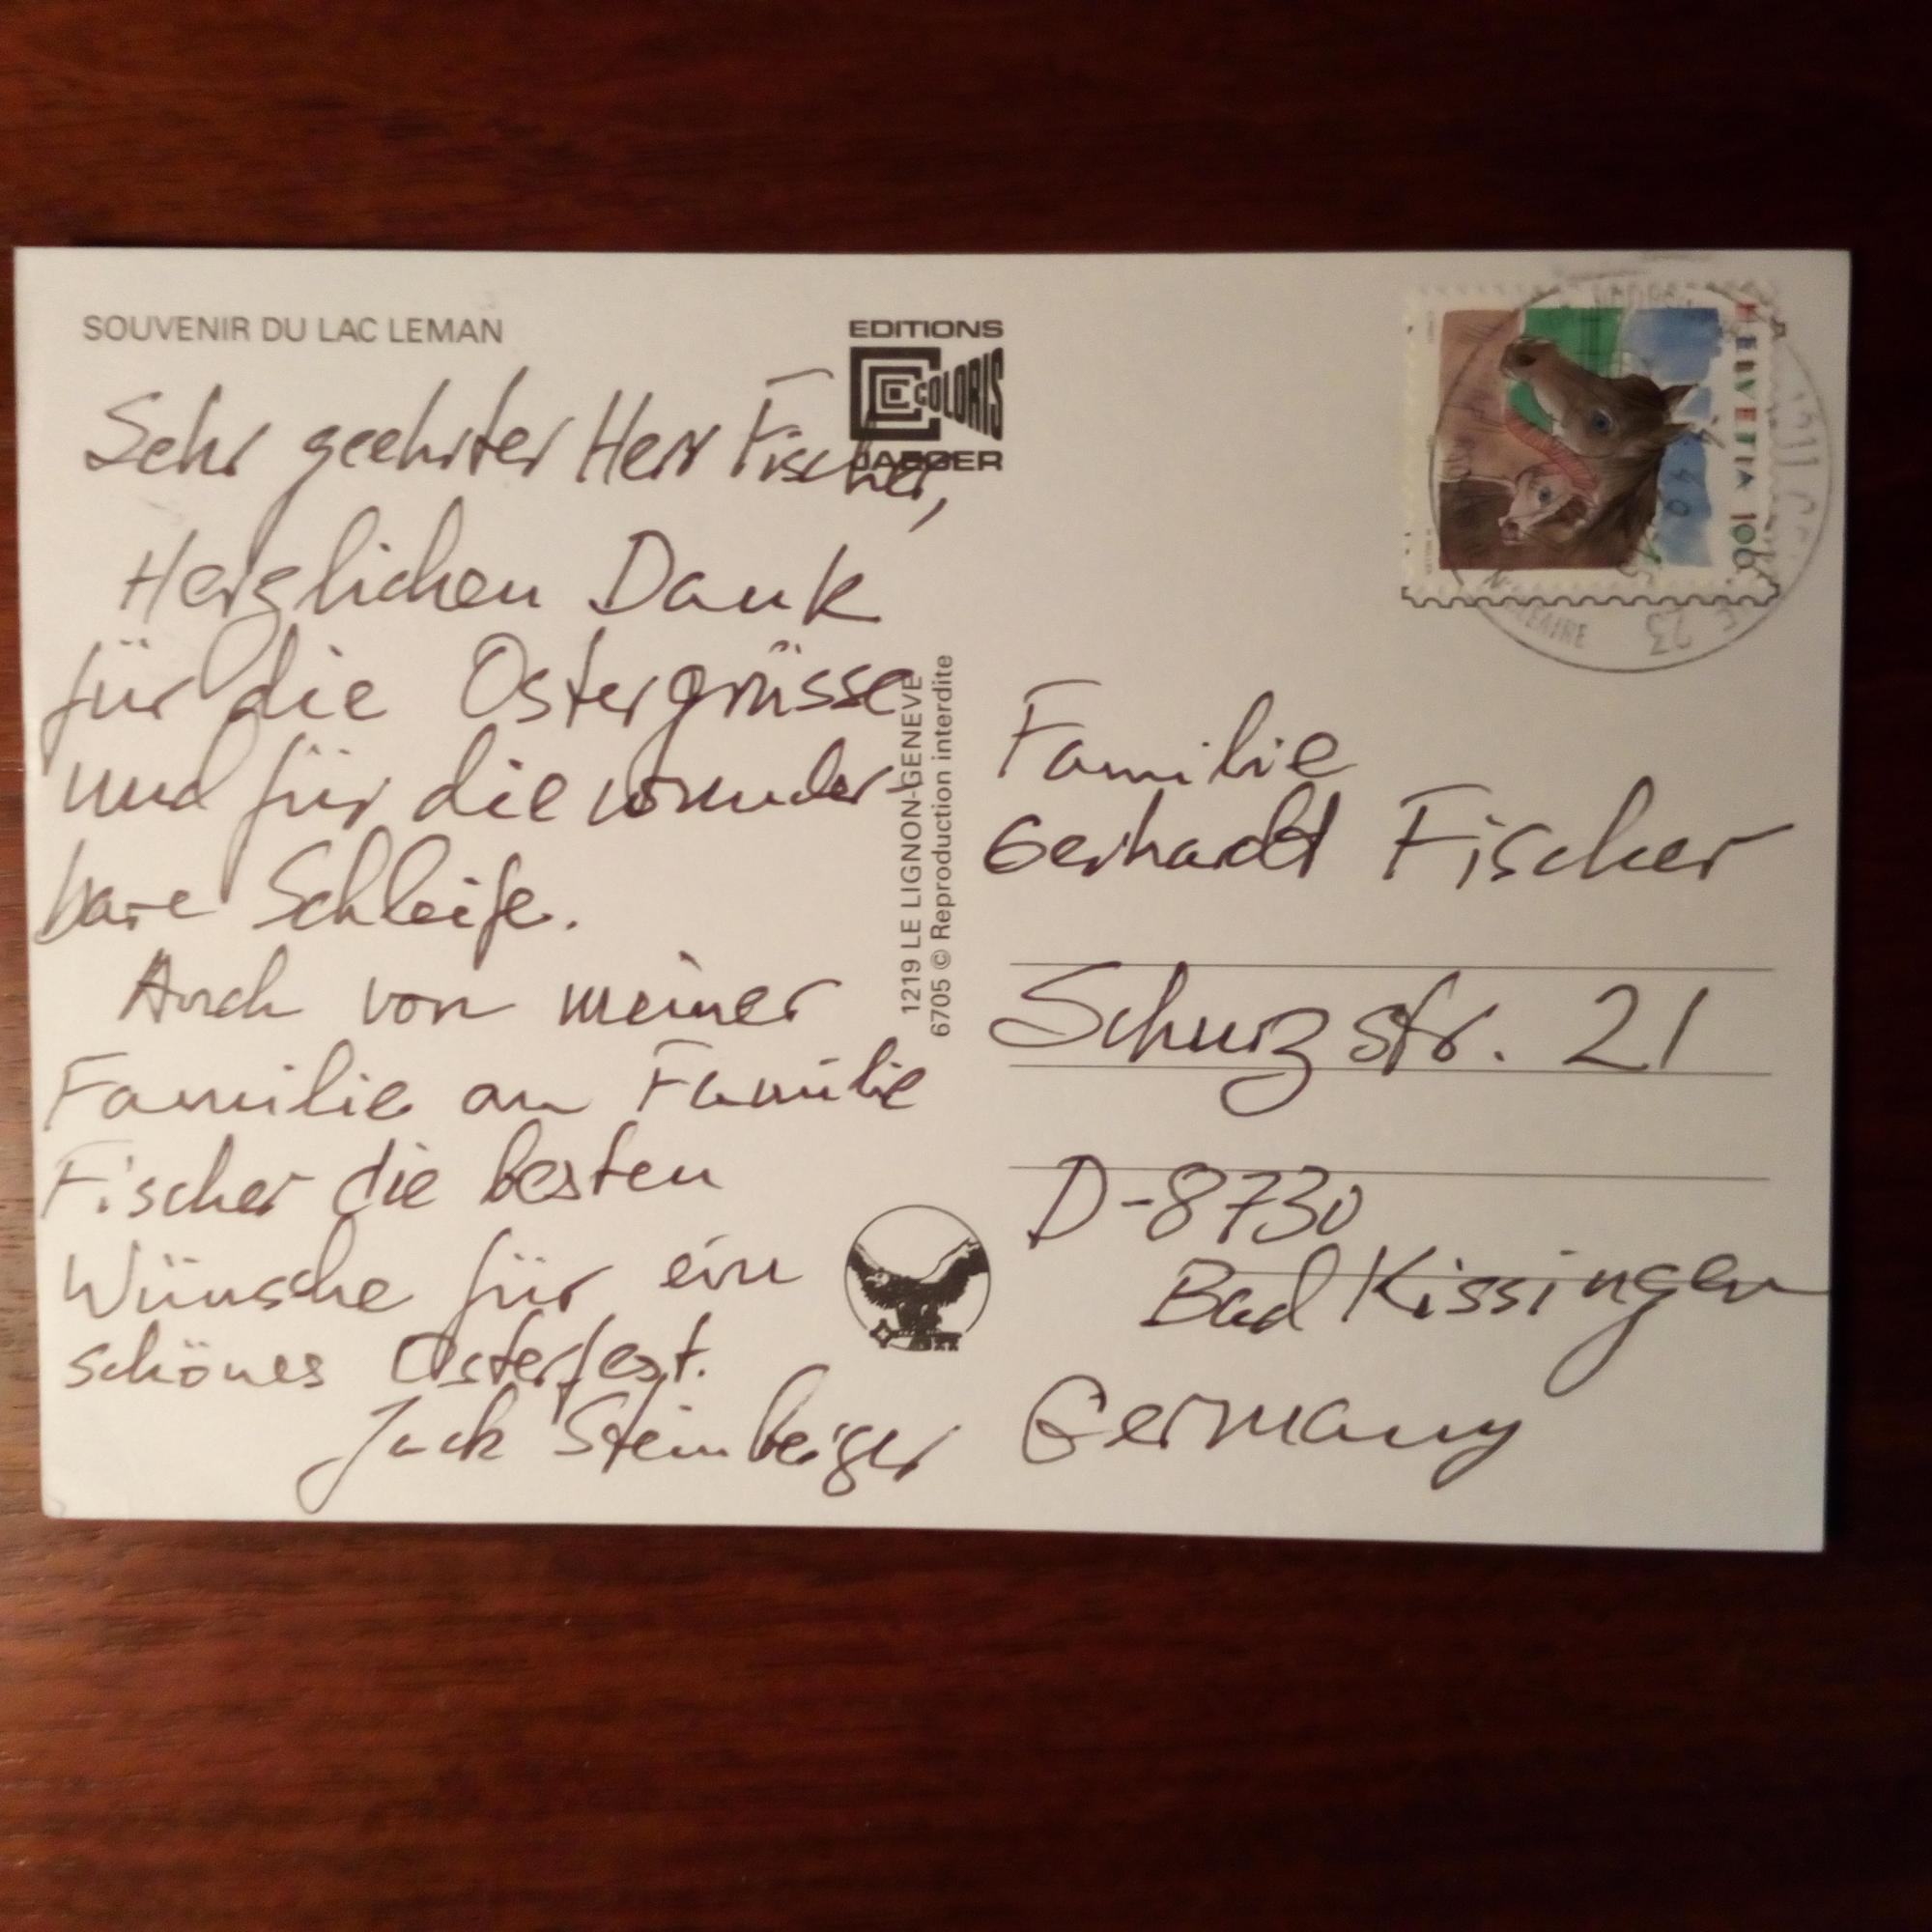 SOUVENIR DU LAC LEMAN
EDITIONS
COLORIS
JAEGER
Sehr geehrter Herr Fischer,
Herzlichen Dank
für die Ostergrüsse
und für die wunder-
bare Schleife.
Auch von meiner
Familie an Familie
Fischer die besten
Wünsche für ein
schönes Osterfest.
Jack Steinberger
1219 LE LIGNON-GENEVE
6705 © Reproduction interdite
HELVETIA 100
1211
23
Familie
Gerhardt Fischer
Schurzstr. 21
D-8730
Bad Kissingen
Germany